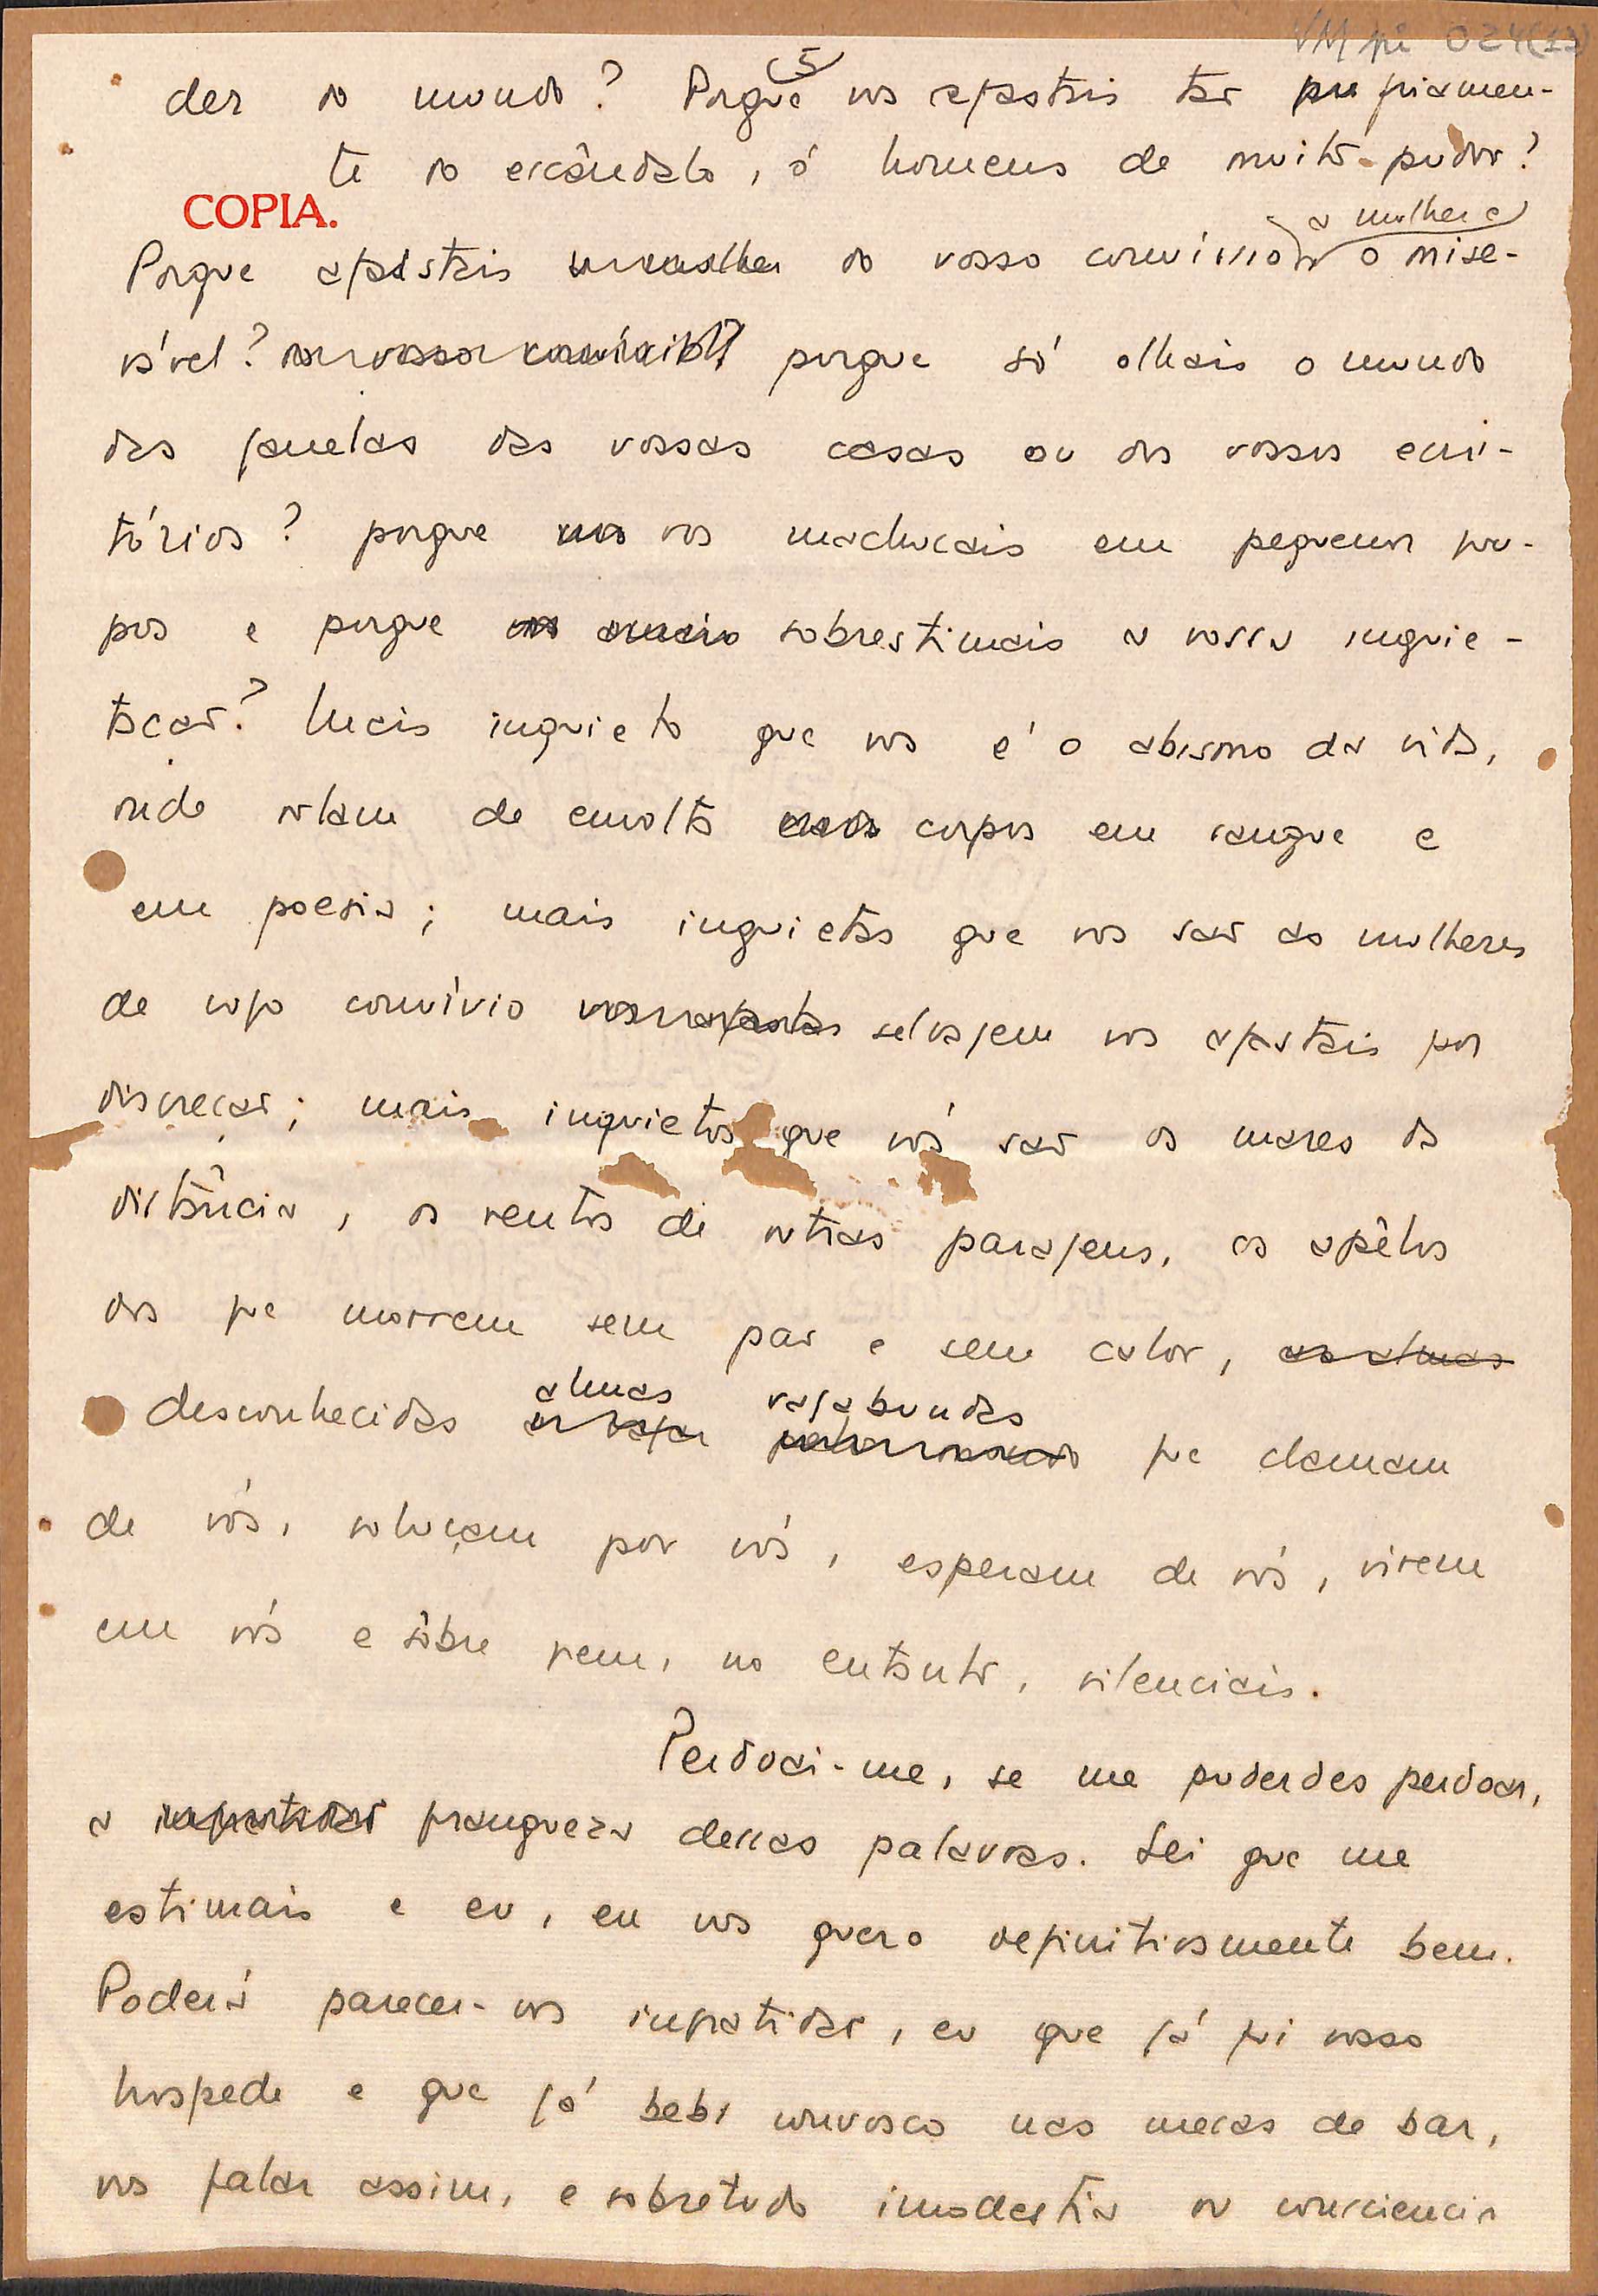 VM pi 024(13)
(5)
der do mundo? Porque vos afastais tão pròpriamen-
te do escândalo, ó homens de muito pudor?
COPIA.
a mulher e
Porque afastais do vosso convívio o mise-
rável? porque só olhais o mundo
das janelas das vossas casas ou dos vossos escri-
tórios? porque vos machucais em pequenos gru-
pos e porque sobrestimais a vossa inquie-
tação? Mais inquieto que vós é o abismo da vida,
onde rolam de envolta corpos em sangue e
em poesia; mais inquietas que vós são as mulheres
de cujo convívio selvajem vos afastais por
discreção; mais inquietos que vós são os mares da
distância, os ventos de outras parajens, os apêlos
dos que morrem sem pão e sem calor, as almas
desconhecidas almas vagabundas que clamam
de vós, soluçam por vós, esperam de vós, vivem
em vós e sôbre quem, no entanto, silenciais.
Perdoai-me, se me puderdes perdoar,
a franqueza dessas palavras. Sei que me
estimais e eu, eu vos quero definitivamente bem.
Poderá parecer-vos ingratidão, eu que já fui vosso
hospede e que já bebi convosco nas mesas de bar,
vos falar assim, e sobretudo imodestia ou consciencia